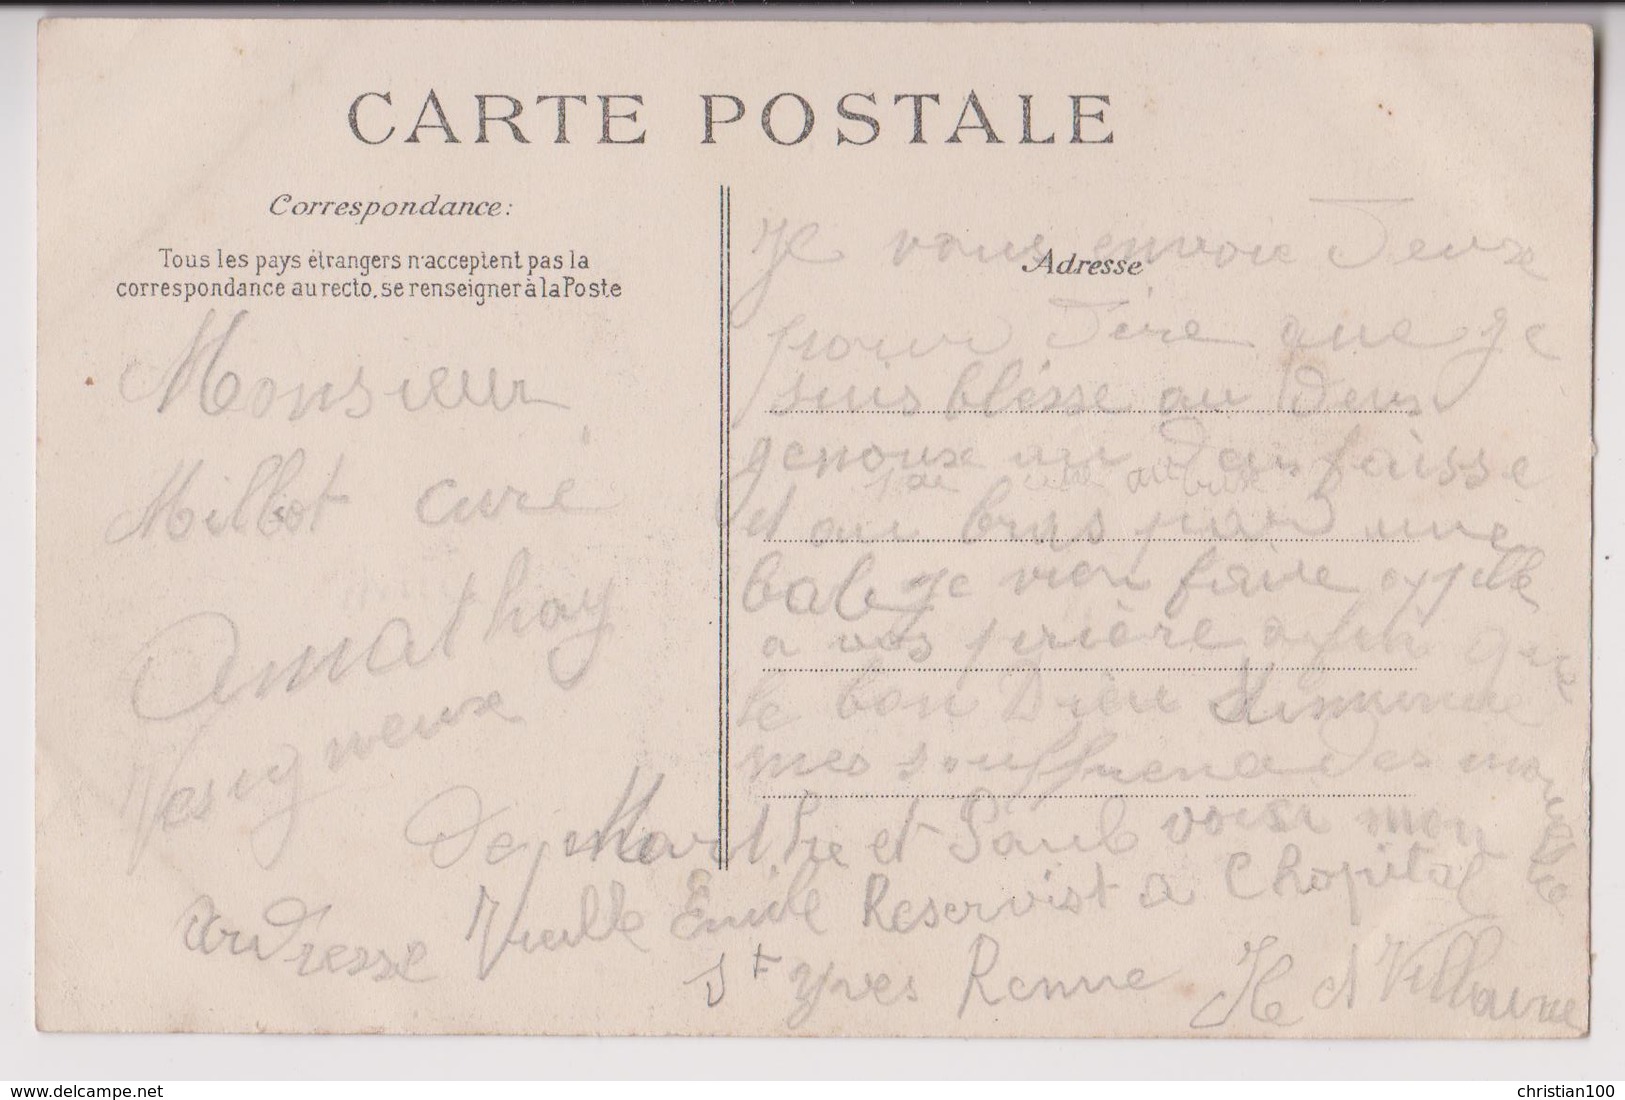 CARTE POSTALE
Correspondance:
Tous les pays étrangers n'acceptent pas la
correspondance au recto, se renseigner à la Poste
Monsieur
Millot curé
Amathay
Vesigneux
Adresse
Je vous envoie Deux
pour Dire que je
suis blésse au Deus
genoux au Deus faisse
et au bras par une
bale je vien faire appelle
a vos prière afin que
le bon Dieu diminue
mes souffrena
De Marthe et Paul voisi mon
ardresse Vieille Émile Reservist a L hopital
St Yves Renne Il et Villaine
www.delcampe.net
christian100